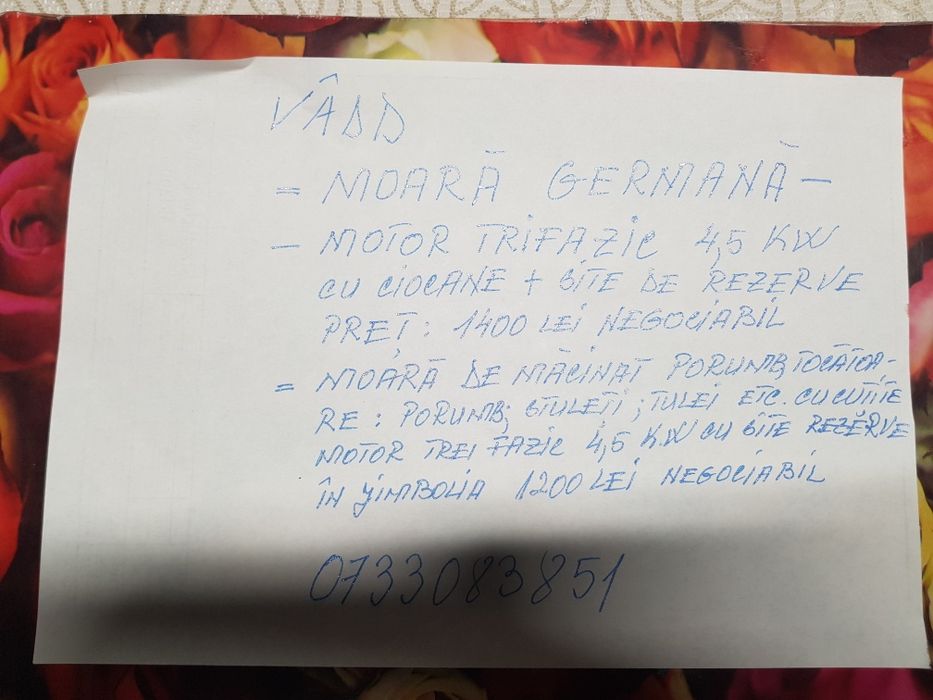 VÂDD
= MOARĂ GERMANĂ -
- MOTOR TRIFAZIC 4,5 KW
CU CIOCANE + SITE DE REZERVE
PREȚ: 1400 LEI NEGOCIABIL
= MOARĂ DE MĂCINAT PORUMB, TOCĂTOA-
RE: PORUMB; STULEȚI; TULEI ETC. CU CUTITE
MOTOR TREI FAZIC 4,5 KW CU SITE REZERVE
ÎN JIMBOLIA 1200 LEI NEGOCIABIL
0733083851